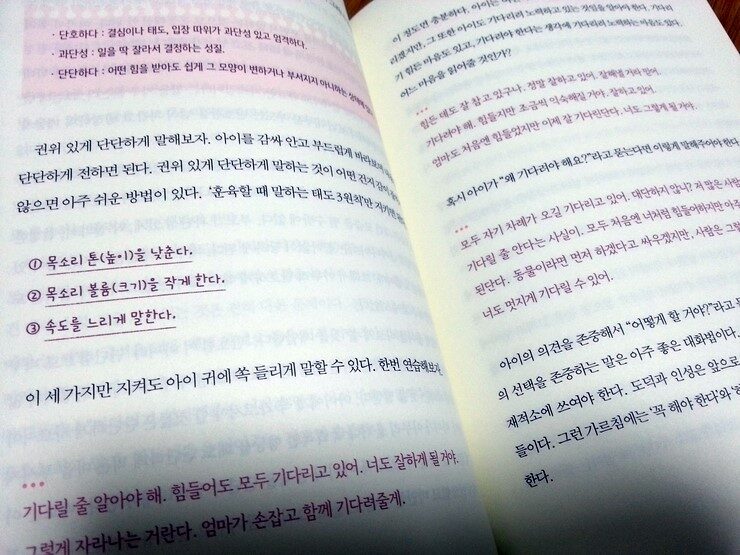 · 단호하다 : 결심이나 태도, 입장 따위가 과단성 있고 엄격하다.
· 과단성 : 일을 딱 잘라서 결정하는 성질.
· 단단하다 : 어떤 힘을 받아도 쉽게 그 모양이 변하거나 부서지지 아니하는 상태에
권위 있게 단단하게 말해보자. 아이를 감싸 안고 부드럽게 바라보며
단단하게 전하면 된다. 권위 있게 단단하게 말하는 것이 어떤 건지 감이
않으면 아주 쉬운 방법이 있다. '훈육할 때 말하는 태도 3원칙'만
① 목소리 톤(높이)을 낮춘다.
② 목소리 볼륨(크기)을 작게 한다.
③ 속도를 느리게 말한다.
이 세 가지만 지켜도 아이 귀에 쏙 들리게 말할 수 있다. 한번 연습해보자.
기다릴 줄 알아야 해. 힘들어도 모두 기다리고 있어. 너도 잘하게 될 거야.
그렇게 자라나는 거란다. 엄마가 손잡고 함께 기다려줄게.
이 정도면 충분하다. 아이는
리겠지만, 그 또한 아이도 기다리려 노력하고 있는 것임을 알아야 한다. 기다리
기 힘든 마음도 있고, 기다려야 한다는 생각에 기다리려 노력하는 마음도 있다.
어느 마음을 읽어줄 것인가?
힘든 데도 잘 참고 있구나. 정말 잘하고 있어. 잘해낼 거라 믿어.
기다려야 해. 힘들지만 조금씩 익숙해질 거야. 잘하고 있어.
엄마도 처음엔 힘들었지만 이제 잘 기다린단다. 너도 그렇게 될 거야.
혹시 아이가 "왜 기다려야 해요?"라고 묻는다면 이렇게 말해주어야 한다.
모두 자기 차례가 오길 기다리고 있어. 대단하지 않니? 저 많은 사람
기다릴 줄 안다는 사실이. 모두 처음엔 너처럼 힘들어하지만 아주
된단다. 동물이라면 먼저 하겠다고 싸우겠지만, 사람은 그럴
너도 멋지게 기다릴 수 있어.
아이의 의견을 존중해서 "어떻게 할 거야?"라고
의 선택을 존중하는 말은 아주 좋은 대화법이다.
재적소에 쓰여야 한다. 도덕과 인성은 앞으로
들이다. 그런 가르침에는 '꼭 해야 한다'와
한다.